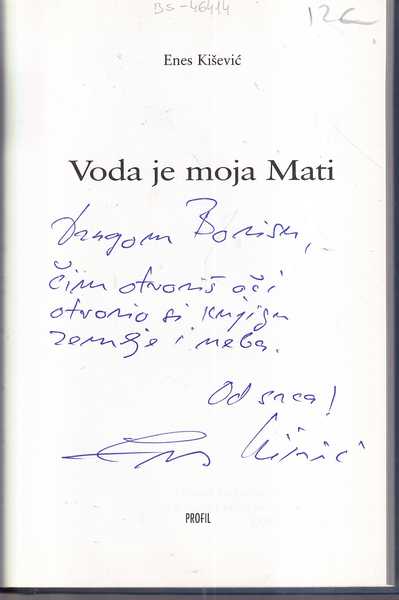 BS-46414
12€
Enes Kišević
Voda je moja Mati
Dragom Borisu,
čim otvoriš oči
otvorio si knjigu
zemlje i neba.
Od srca!
Enes Kišević
PROFIL